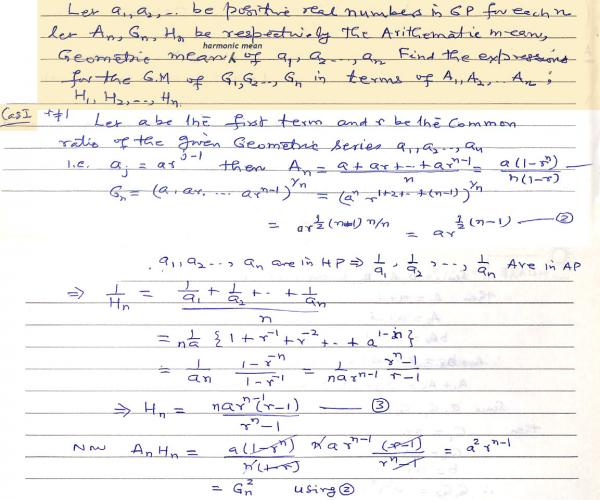 Let a₁, a₂, .. be positive real numbers in GP for each n
let An, Gn, Hn be respectively The Arithmatic means,
harmonic mean
Geometric means of a₁, a₂ ..., an Find the expressions
for the G.M of G₁, G₂.., Gn in terms of A₁, A₂, .. An ;
H₁, H₂, .., Hn.
Case I r≠1 Let a be the first term and r be the Common
ratio of the given Geometric Series a₁, a₂..., an
i.e. aj = ar^(j-1) then An = (a + ar + .. + ar^(n-1))/n = a(1-r^n)/n(1-r) —
Gn = (a, ar, ... ar^(n-1))^(1/n) = (a^n r^(1+2+..+(n-1)))^(1/n)
= ar^(1/2 (n-1) n/n) = ar^(1/2 (n-1)) — ②
. a₁, a₂.., an are in HP ⇒ 1/a₁, 1/a₂, .., 1/an Are in AP
⇒ 1/Hn = (1/a₁ + 1/a₂ + .. + 1/an)/n
= 1/na {1 + r^-1 + r^-2 + .. + a^(1-n)}
= 1/an (1-r^-n)/(1-r^-1) = 1/(nar^(n-1)) (r^n-1)/(r-1)
⇒ Hn = nar^(n-1)(r-1)/(r^n-1) — ③
Now An Hn = a(1-r^n)/n(1-r) n a r^(n-1) (r-1)/(r^n-1) = a² r^(n-1)
= Gn² using ②